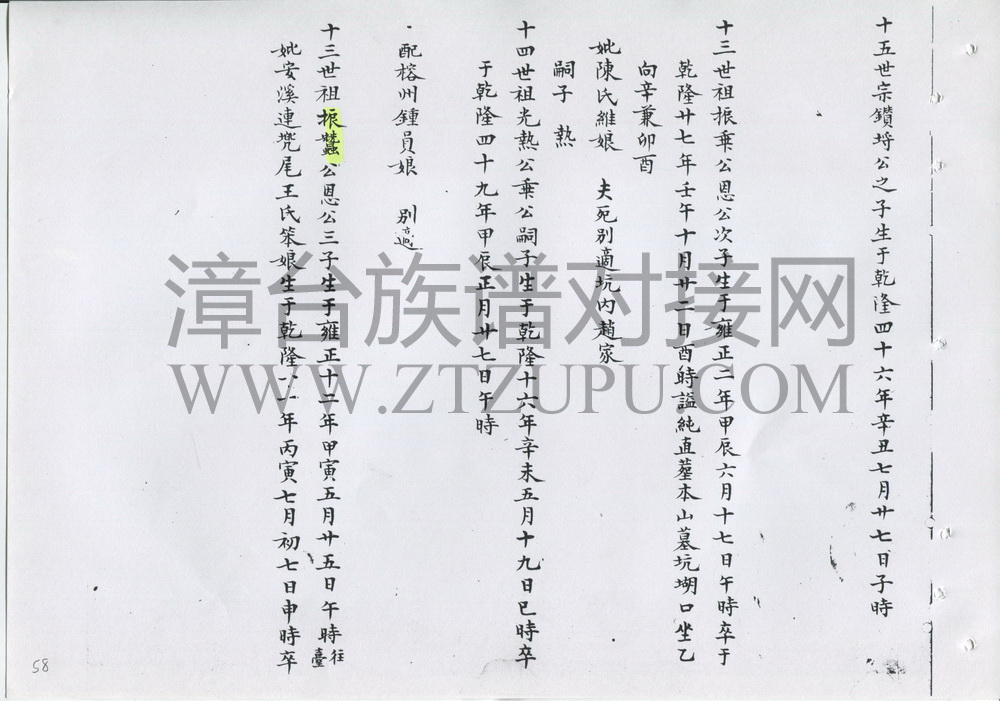 十五世宗鑽埒公之子生于乾隆四十六年辛丑七月廿七日子時
十三世祖振乗公恩公次子生于雍正二年甲辰六月十七日午時卒于
乾隆廿七年壬午十月廿二日酉時謚純直塟本山墓坑堋口坐乙
向辛兼卯酉
妣陳氏維娘 夫宛别適坑内趙家
嗣子 熱
十四世祖光熱公乗公嗣子生于乾隆十六年辛未五月十九日巳時卒
于乾隆四十九年甲辰正月廿七日午時
配榕州鍾員娘 别適
十三世祖振蠶公恩公三子生于雍正十二年甲寅五月廿五日午時往臺
妣安溪連兠尾王氏笨娘生于乾隆十一年丙寅七月初七日申時卒
58
漳台族谱对接网
WWW.ZTZUPU.COM